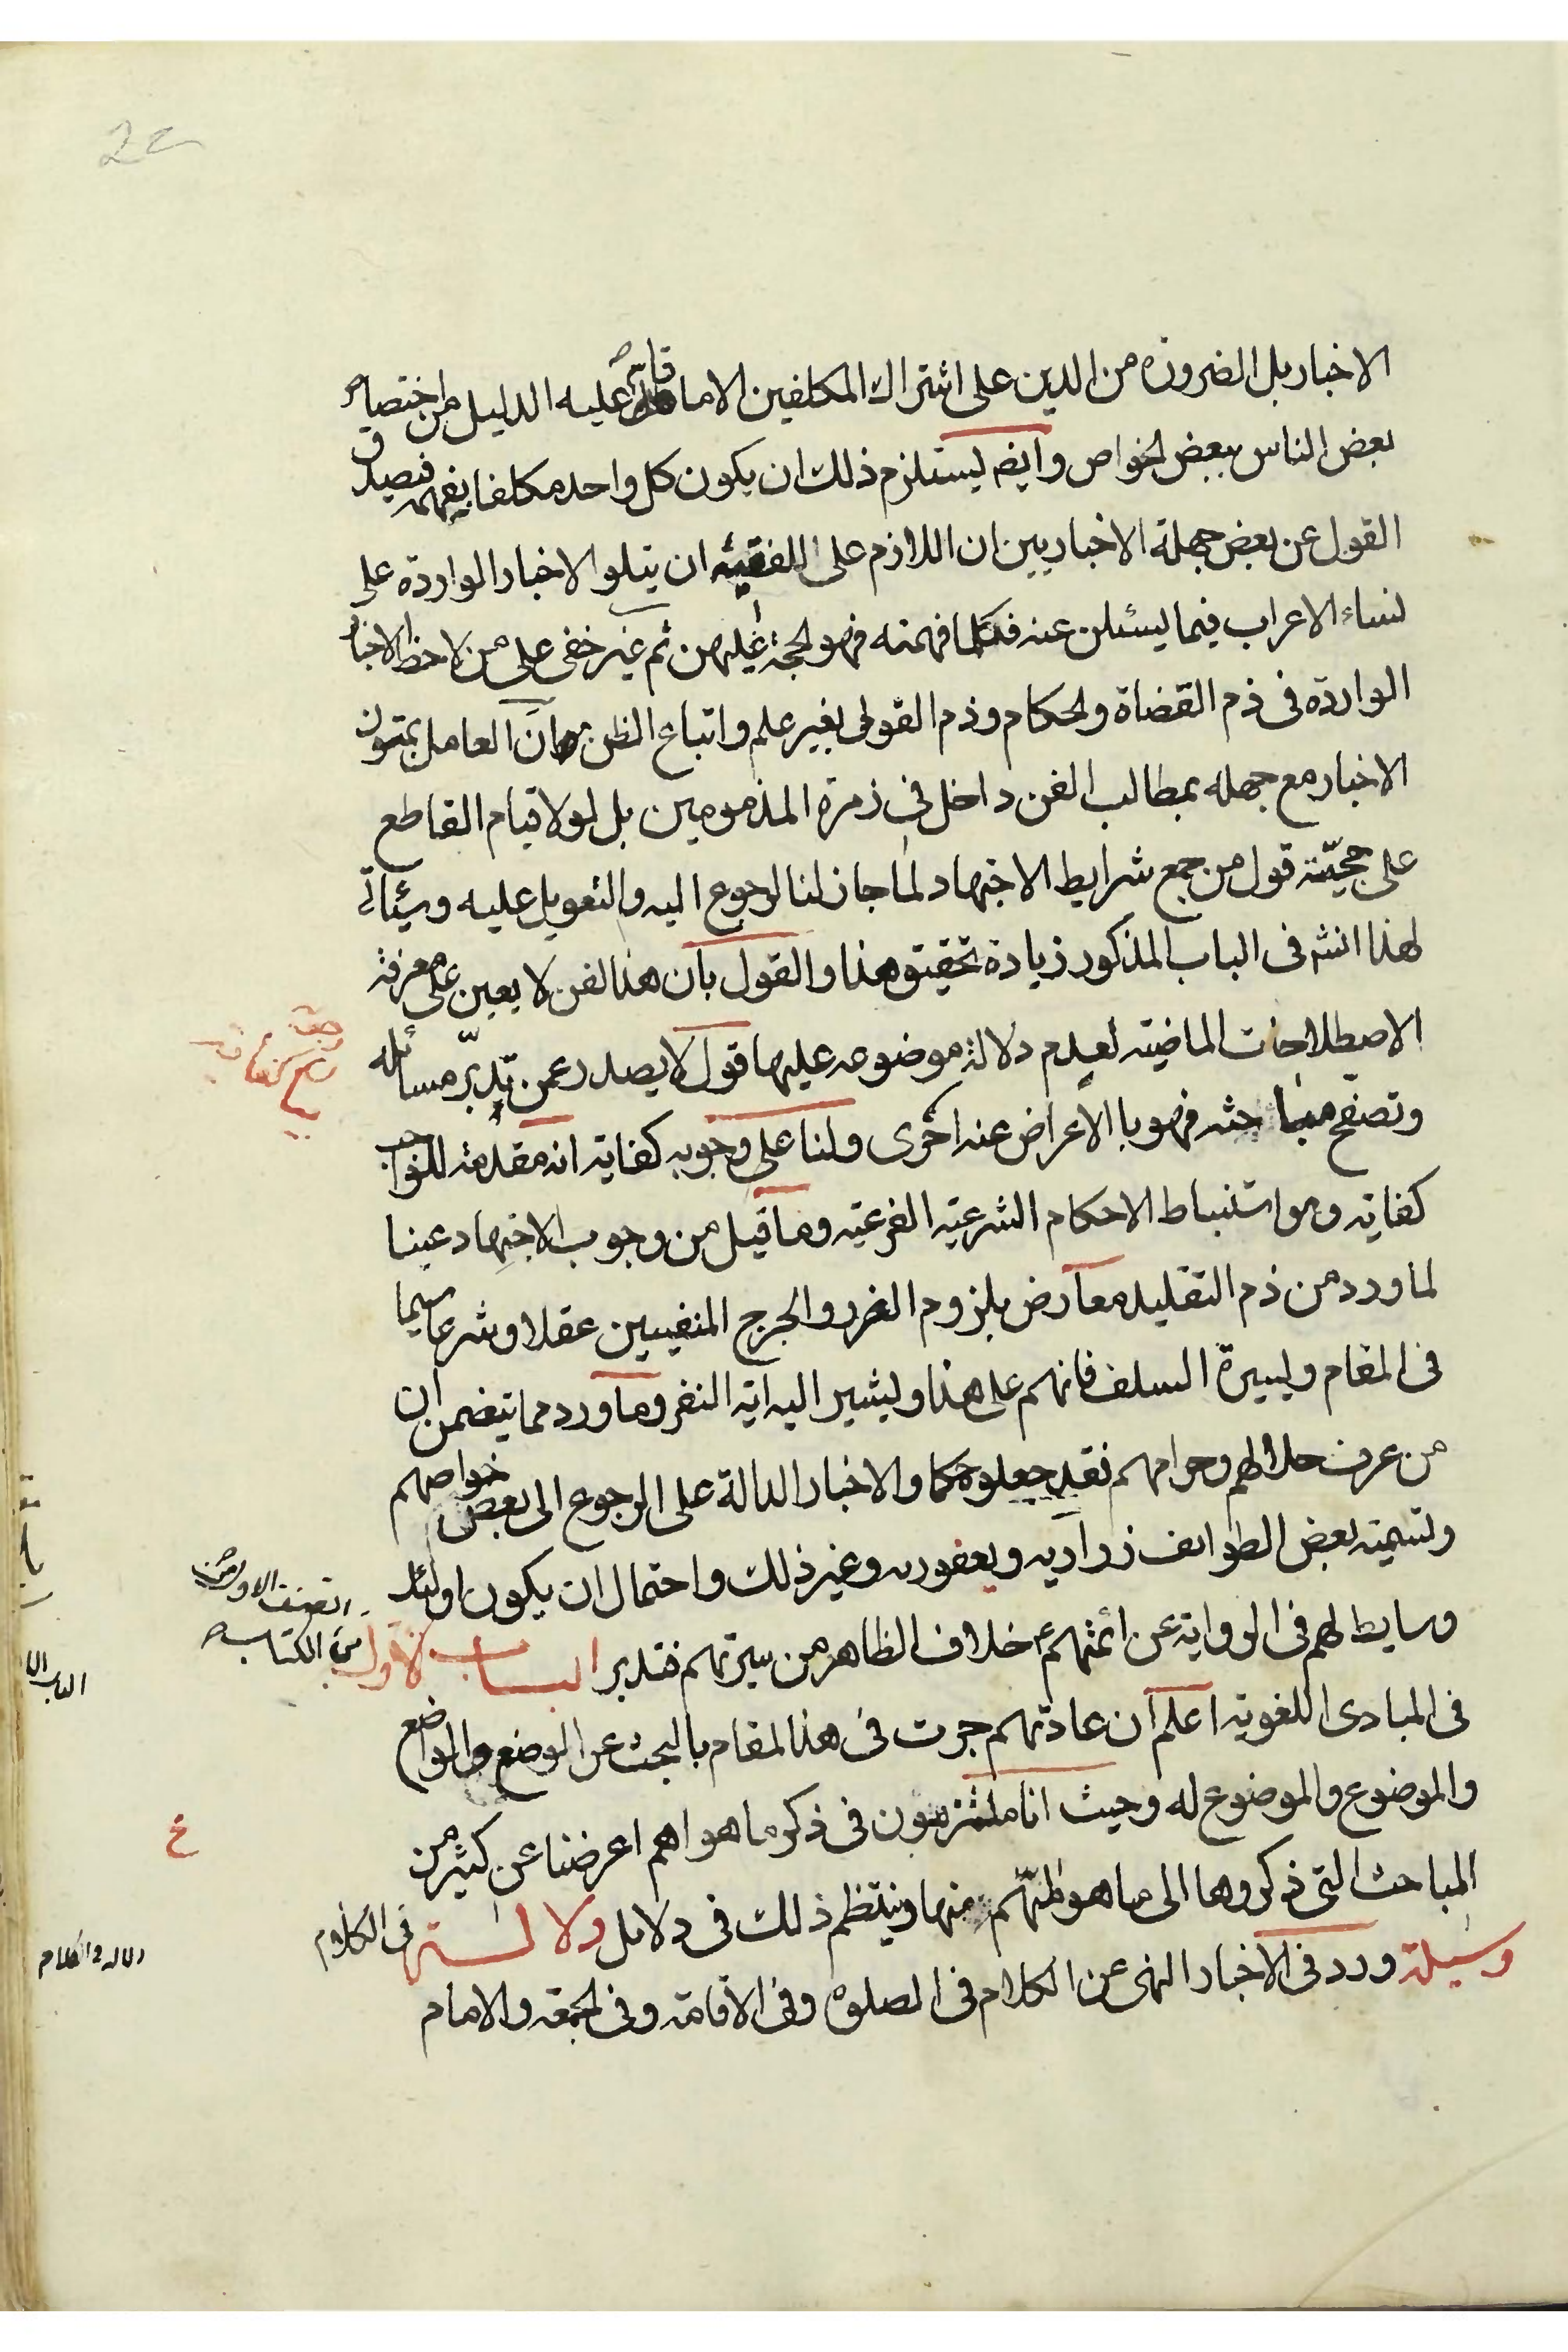 الاخبار بل الضرورة من الدين على اشتراك المكلفين الا ما قام عليه الدليل من اختصاص
بعض الناس ببعض الخواص وايضه يستلزم ذلك ان يكون كل واحد مكلفا بفهمه فيصدق
القول عن بعض جهلة الاخباريين ان اللازم على الفقيه ان يتلو الاخبار الواردة على
نساء الاعراب فيما يسئلن عنه فكلما فهمنه فهو الحجة عليهن ثم غير خفى على من لاحظ الاخبار
الواردة فى ذم القضاة والحكام وذم القول بغير علم واتباع الظن ان العامل بمتون
الاخبار مع جهله بمطالب الفن داخل فى زمرة المذمومين بل لولا قيام القاطع
على حجيّة قول من جمع شرايط الاجتهاد لما جاز لنا الرجوع اليه والتعويل عليه وسيئاتى
لهذا انشه فى الباب المذكور زيادة تحقيق هذا والقول بان هذا الفن لا يعين على معرفة
الاصطلاحات الماضية لعدم دلالة موضوعه عليها قول لا يصدر عمن تدبّر مسائله
وتصفح مباحثه فهو بالاعراض عنه احرى ولنا على وجوبه كفاية انه مقدمة للواجب
كفاية وهو استنباط الاحكام الشرعية الفرعية وما قيل من وجوب الاجتهاد عينا
لما ورد من ذم التقليد معارض بلزوم الضرر والحرج المنفيين عقلا وشرعا سيما
فى المقام ولسيرة السلف فانهم على هذا ويشير اليه اية النفر وما ورد مما يتضمن ان
من عرف حلالهم وحرامهم فقد جعلوه حكما والاخبار الدالة على الرجوع الى بعض خواصهم
وتسمية بعض الطوايف زرارديه ويعفوريه وغير ذلك واحتمال ان يكون اولئك
وسايط لهم فى الرواية عن ائمتهم ع خلاف الظاهر من سيرتهم فتدبر الباب الاول من الكتاب
فى المبادى اللغوية اعلم ان عادتهم جرت فى هذا المقام بالبحث عن الوضع والواضع
والموضوع والموضوع له وحيث انا ملتزمون فى ذكر ما هو اهم اعرضنا عن كثير من
المباحث التى ذكروها الى ما هو المهم منها وينتظم ذلك فى دلايل دلالة فى الكلام
وسيلة ورد فى الاخبار النهى عن الكلام فى الصلوة وفى الاقامة وفى الجمعة والامام